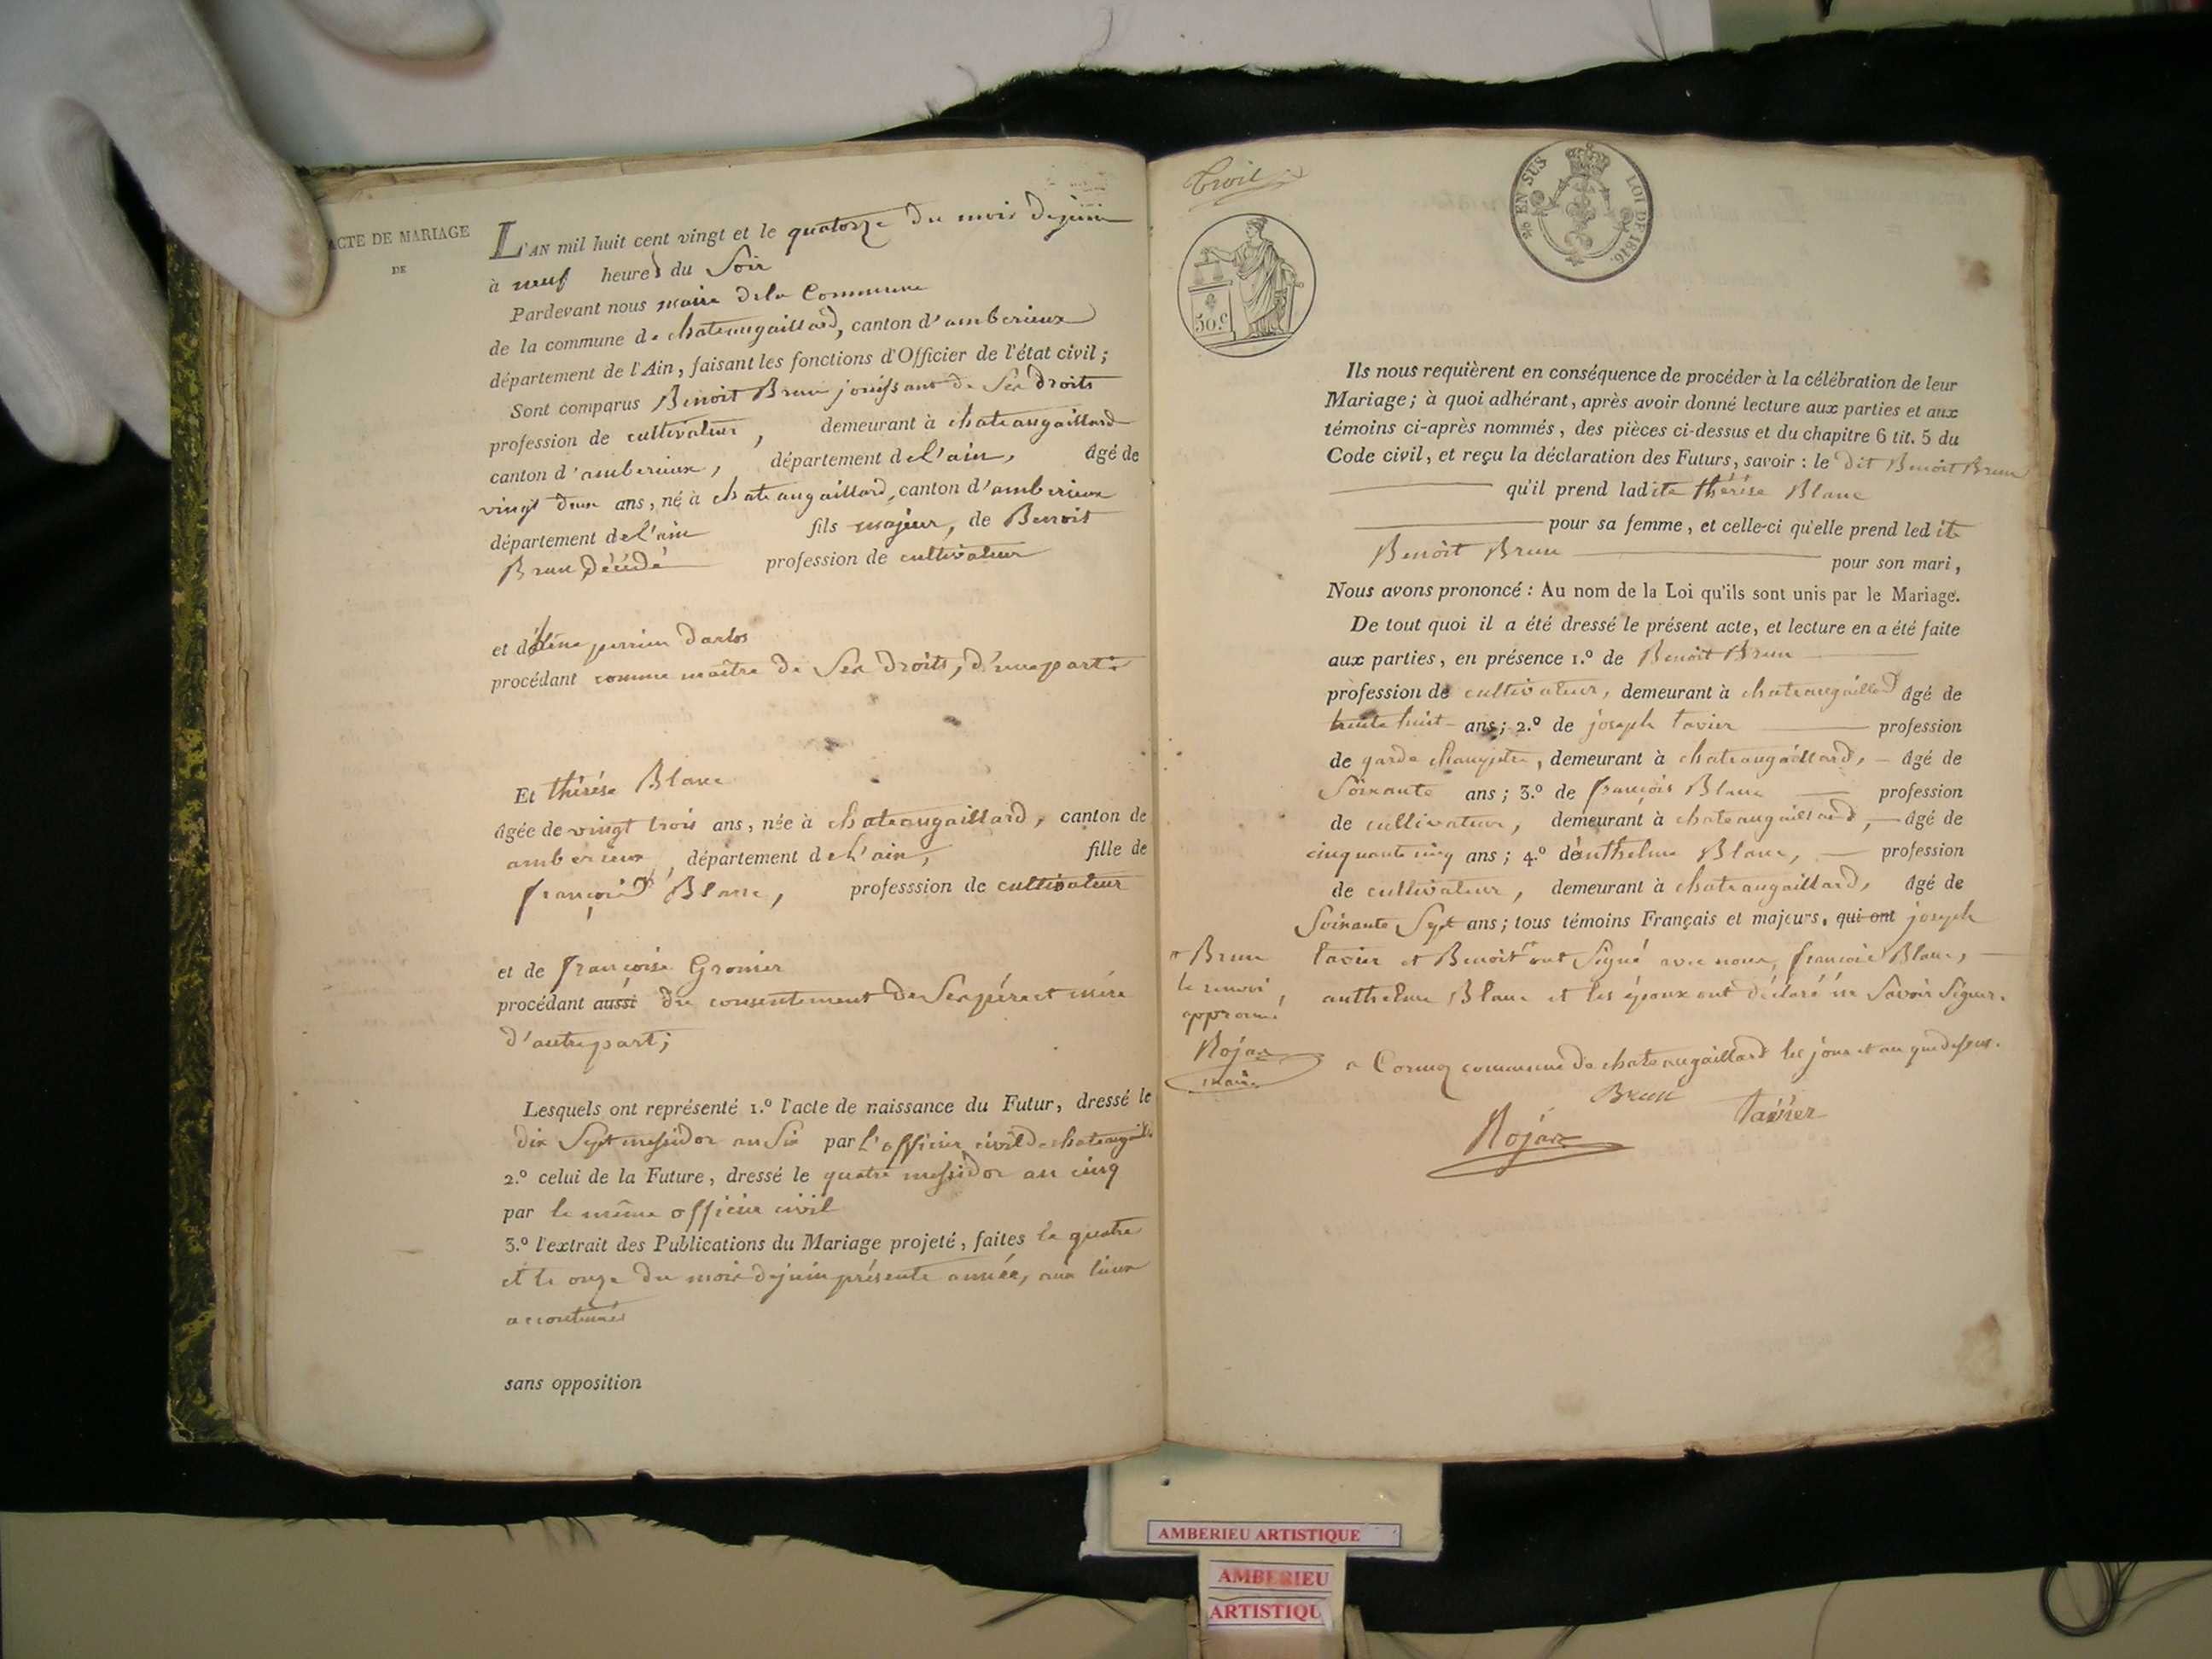 ACTE DE MARIAGE
DE
L'AN mil huit cent vingt et le quatorze du mois de juin
à neuf heures du Soir
Pardevant nous maire de la Commune
de la commune de chateaugaillard, canton d'amberieux
département de l'Ain, faisant les fonctions d'Officier de l'état civil ;
Sont comparus Benoit Brun jouissant de Ses droits
profession de cultivateur, demeurant à chateaugaillard
canton d'amberieux, département de l'ain, âgé de
vingt deux ans, né à chateaugaillard, canton d'amberieux
département de l'ain fils majeur, de Benoit
Brun décédé profession de cultivateur
et d' perrier Darlos
procédant comme maître de Ses droits, d'une part
Et thérèse Blanc
âgée de vingt trois ans, née à chateaugaillard, canton de
amberieux, département de l'ain, fille de
françois Blanc, professsion de cultivateur
et de françoise Gronier
procédant aussi du consentement de Ses père et mère
d'autre part ;
Lesquels ont représenté 1.º l'acte de naissance du Futur, dressé le
dix Sept messidor an Six par l'officier civil de chateaugaill.
2.º celui de la Future, dressé le quatre messidor an cinq
par le même officier civil
3.º l'extrait des Publications du Mariage projeté, faites le quatre
et le onze du mois de juin présente année, aux lieux
accoutumés
sans opposition
% EN SUS LOI DE 1816.
50.c
Ils nous requièrent en conséquence de procéder à la célébration de leur
Mariage ; à quoi adhérant, après avoir donné lecture aux parties et aux
témoins ci-après nommés, des pièces ci-dessus et du chapitre 6 tit. 5 du
Code civil, et reçu la déclaration des Futurs, savoir : le dit Benoit Brun
qu'il prend ladite thérèse Blanc
pour sa femme, et celle-ci qu'elle prend ledit
Benoit Brun pour son mari,
Nous avons prononcé : Au nom de la Loi qu'ils sont unis par le Mariage.
De tout quoi il a été dressé le présent acte, et lecture en a été faite
aux parties, en présence 1.º de Benoit Brun
profession de cultivateur, demeurant à chateaugaillard âgé de
trente huit ans ; 2.º de joseph tavier profession
de garde champetre, demeurant à chateaugaillard, âgé de
Soixante ans ; 3.º de françois Blanc profession
de cultivateur, demeurant à chateaugaillard, âgé de
cinquante cinq ans ; 4.º d'anthelme Blanc, profession
de cultivateur, demeurant à chateaugaillard, âgé de
Soixante Sept ans ; tous témoins Français et majeurs, qui ont joseph
tavier et Benoit ont Signé avec nous, françois Blanc,
anthelme Blanc et les époux ont déclaré ne Savoir Signer.
Brun
le renvoi
approuvé
Rojax
maire
a Cormoz commune de chateaugaillard les jour et an que dessus.
Brun
tavier
Rojax
AMBERIEU ARTISTIQUE
AMBERIEU
ARTISTIQU